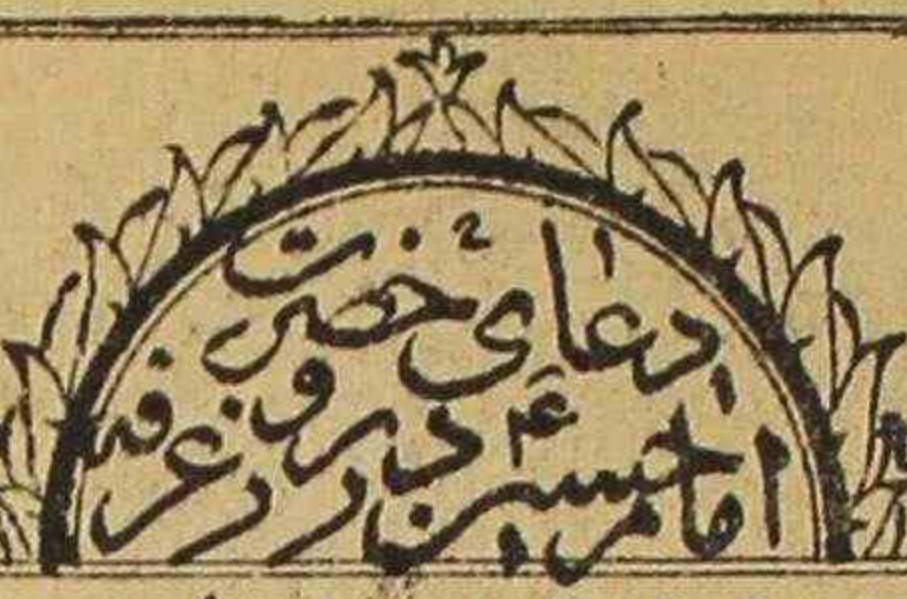 دعای حضرت
امام حسین ع در روز عرفه